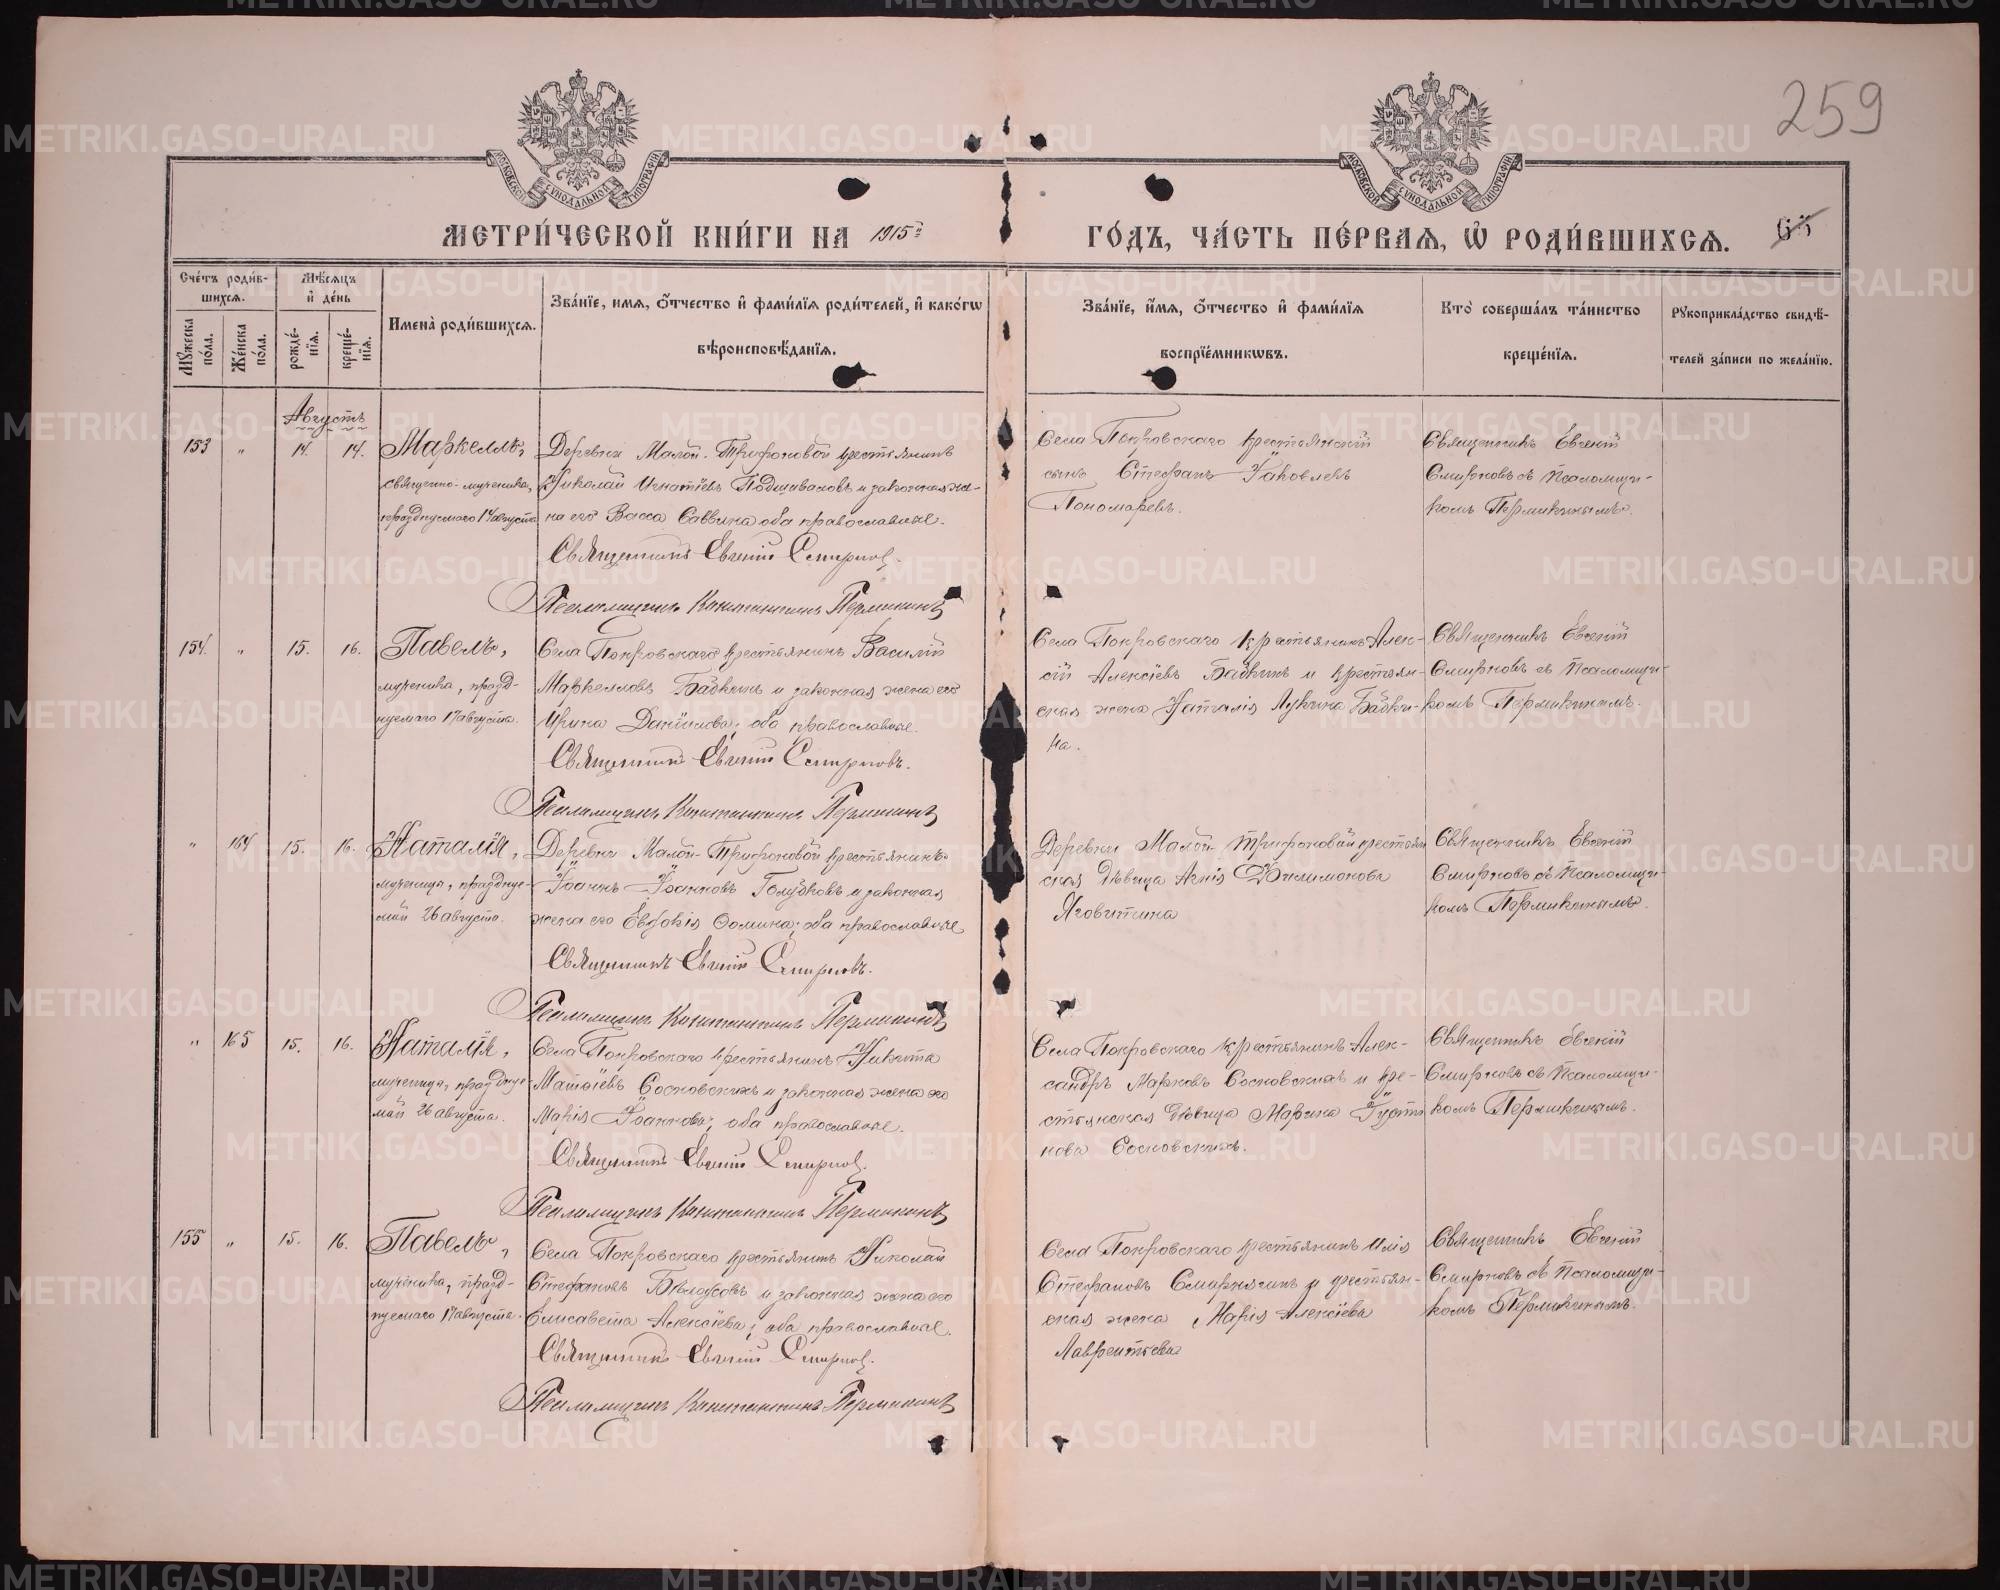 259
МЕТРИ́ЧЕСКОЙ КНИ́ГИ НА 1915й ГО́ДЪ, ЧА́СТЬ ПЕ́РВАЯ, Ѡ РОДИ́ВШИХСЯ.
65
Сче́тъ роди́в-
шихся.
Мѣ́сяцъ
и҆ де́нь
Имена̀ роди́вшихся.
Зва́нїе, и́мя, ѻ҆́тчество и҆ фами́лїя роди́телей, и҆ како́гѡ
вѣроисповѣ́данїя.
Зва́нїе, и҆́мя, ѻ҆́тчество и҆ фами́лїя
воспрїе́мникѡвъ.
Кто̀ соверша́лъ та́инство
креще́нїя.
Рꙋкоприкла́дство свидѣ́-
телей за́писи по жела́нїю.
Мꙋ́жеска
по́ла.
Же́нска
по́ла.
рожде́-
нїя.
креще́-
нїя.
Августъ
153 " 14. 14. Маркеллъ,
священно-мученика,
празднуемаго 14 августа
Деревни Малой-Трифоновой крестьянинъ
Николай Игнатіевъ Подшиваловъ и законная же-
на его Васса Саввина оба православные.
Священникъ Евгеній Смирновъ.
Псаломщикъ Константинъ Пермикинъ
Села Покровскаго крестьянскій
сынъ Стефанъ Іаковлевъ
Пономаревъ.
Священникъ Евгеній
Смирновъ съ псаломщи-
комъ Пермикинымъ.
154. " 15. 16. Павелъ,
мученика, празд-
нуемаго 17 августа.
Села Покровскаго крестьянинъ Василій
Маркелловъ Бабкинъ и законная жена его
Ирина Даніилова; оба православные.
Священникъ Евгеній Смирновъ.
Псаломщикъ Константинъ Пермикинъ
Села Покровскаго крестьянинъ Алек-
сій Алексіевъ Бабкинъ и крестьян-
ская жена Наталія Лукина Бабки-
на.
Священникъ Евгеній
Смирновъ съ псаломщи-
комъ Пермикинымъ.
" 164 15. 16. Наталія,
мученицы, праздну-
мой 26 августа.
Деревни Малой-Трифоновой крестьянинъ
Іоаннъ Іоанновъ Голубковъ и законная
жена его Евдокія Ѳомина; оба православные
Священникъ Евгеній Смирновъ.
Псаломщикъ Константинъ Пермикинъ
Деревни Малой-Трифоновой крестьян
ская дѣвица Агнія Филимонова
Яговитина
Священникъ Евгеній
Смирновъ съ псаломщи-
комъ Пермикинымъ.
" 165 15. 16. Наталія,
мученицы, праздну-
мой 26 августа.
Села Покровскаго крестьянинъ Никита
Матѳіевъ Сосновскихъ и законная жена его
Марія Іоаннова; оба православные.
Священникъ Евгеній Смирновъ.
Псаломщикъ Константинъ Пермикинъ
Села Покровскаго крестьянинъ Алек-
сандръ Марковъ Сосновскихъ и кре-
стьянская дѣвица Марина Іусти
нова Сосновскихъ.
Священникъ Евгеній
Смирновъ съ псаломщи-
комъ Пермикинымъ.
155 " 15. 16. Павелъ,
мученика, празд-
нуемаго 17 августа.
Села Покровскаго крестьянинъ Николай
Стефановъ Бѣлоусовъ и законная жена его
Елисавета Алексіева; оба православные.
Священникъ Евгеній Смирновъ.
Псаломщикъ Константинъ Пермикинъ
Села Покровскаго крестьянинъ Илія
Стефановъ Смарагинъ и крестьян-
ская жена Марія Алексіева
Лаврентьева
Священникъ Евгеній
Смирновъ съ псаломщи-
комъ Пермикинымъ.
METRIKI.GASO-URAL.RU